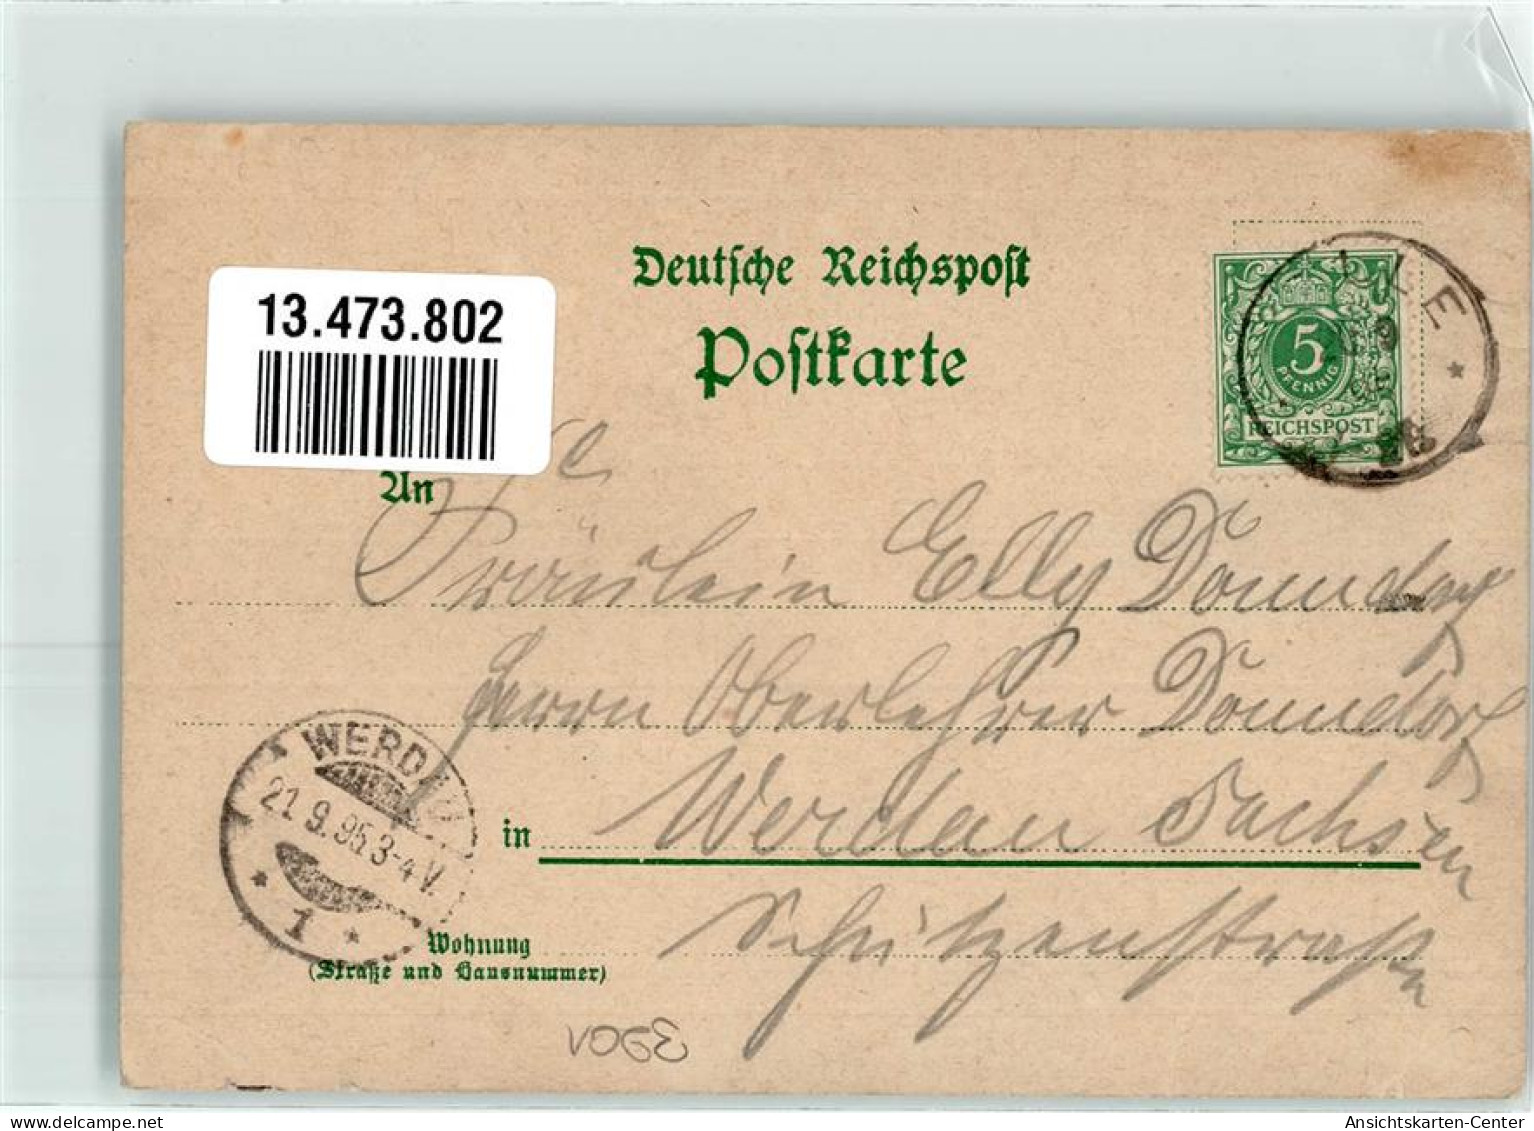 13.473.802
Deutsche Reichspost
Postkarte
5
PFENNIG
REICHSPOST
An
Fräulein Elly Donndorf
Herrn Oberlehrer Donndorf
WERDAU
21.9.95.3-4V.
1
in Werdau Sachsen
Wohnung
(Straße und Hausnummer)
Schützenstraße
delcampe.net
Ansichtskarten-Center